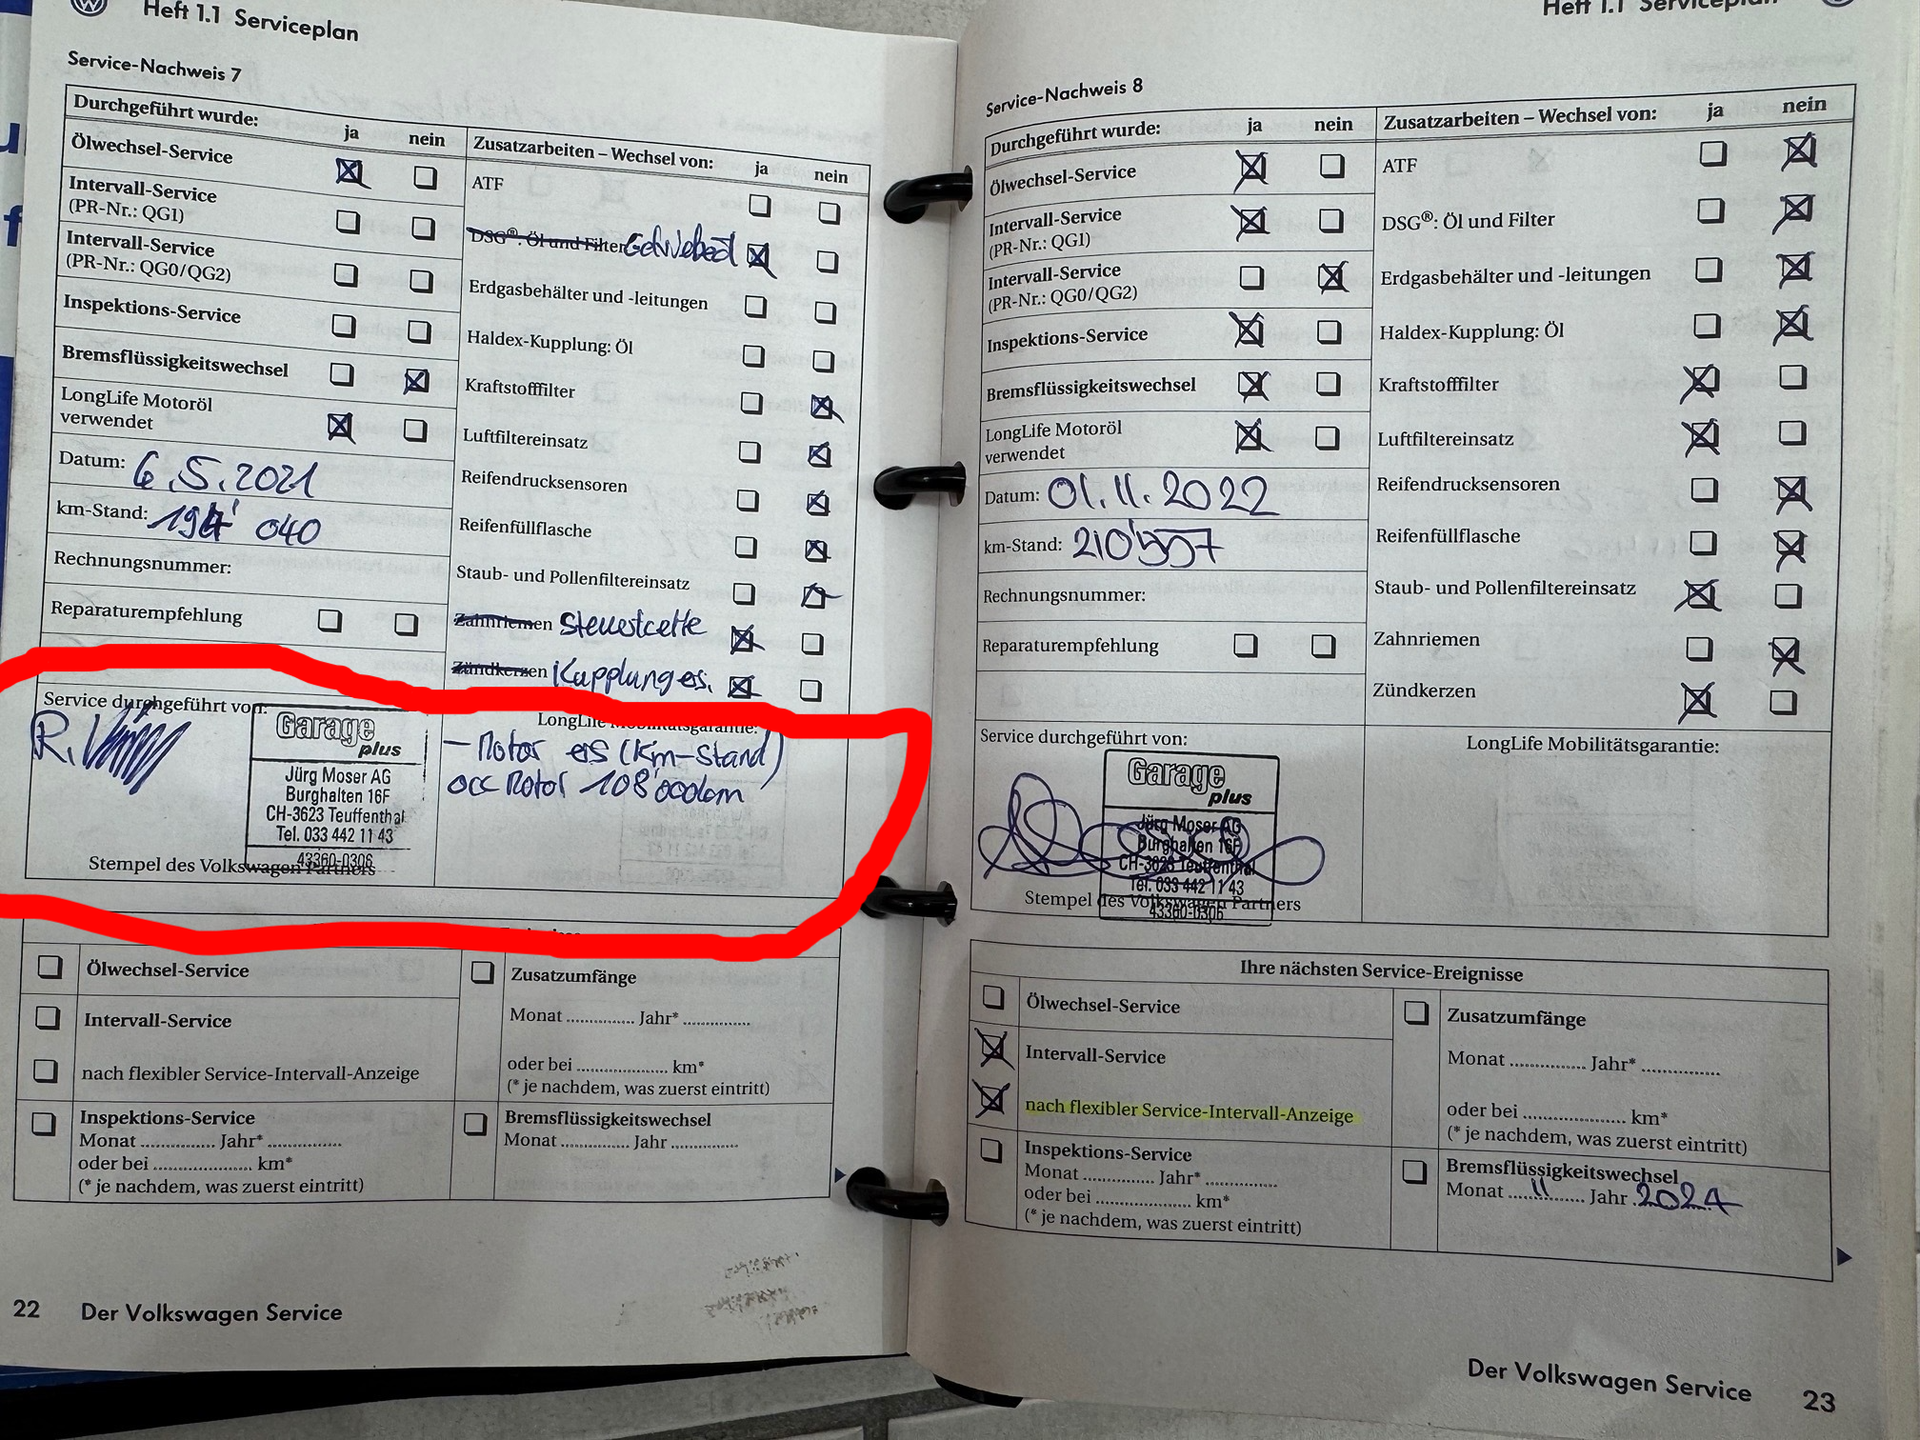 Heft 1.1 Serviceplan
Service-Nachweis 7
Durchgeführt wurde: ja nein
Ölwechsel-Service
Intervall-Service
(PR-Nr.: QG1)
Intervall-Service
(PR-Nr.: QG0/QG2)
Inspektions-Service
Bremsflüssigkeitswechsel
LongLife Motoröl
verwendet
Datum: 6.5.2021
km-Stand: 040
Rechnungsnummer:
Reparaturempfehlung
Zusatzarbeiten – Wechsel von: ja nein
ATF
DSG®: Öl und Filter
Erdgasbehälter und -leitungen
Haldex-Kupplung: Öl
Kraftstofffilter
Luftfiltereinsatz
Reifendrucksensoren
Reifenfüllflasche
Staub- und Pollenfiltereinsatz
Zahnriemen
Zündkerzen Kupplung ers.
Service durchgeführt von:
R.
Garage
plus
Jürg Moser AG
Burghalten 16F
CH-3623 Teuffenthal
Tel. 033 442 11 43
43360-0306
Stempel des Volkswagen Partners
LongLife Mobilitätsgarantie:
– Motor ers (Km-Stand)
occ Motor 108'000km
Ölwechsel-Service
Intervall-Service
nach flexibler Service-Intervall-Anzeige
Inspektions-Service
Monat ............ Jahr* ............
oder bei ............ km*
(* je nachdem, was zuerst eintritt)
Zusatzumfänge
Monat ............ Jahr* ............
oder bei ............ km*
(* je nachdem, was zuerst eintritt)
Bremsflüssigkeitswechsel
Monat ............ Jahr ............
22 Der Volkswagen Service
Heft 1.1 Serviceplan
Service-Nachweis 8
Durchgeführt wurde: ja nein
Ölwechsel-Service
Intervall-Service
(PR-Nr.: QG1)
Intervall-Service
(PR-Nr.: QG0/QG2)
Inspektions-Service
Bremsflüssigkeitswechsel
LongLife Motoröl
verwendet
Datum: 01.11.2022
km-Stand: 210'557
Rechnungsnummer:
Reparaturempfehlung
Zusatzarbeiten – Wechsel von: ja nein
ATF
DSG®: Öl und Filter
Erdgasbehälter und -leitungen
Haldex-Kupplung: Öl
Kraftstofffilter
Luftfiltereinsatz
Reifendrucksensoren
Reifenfüllflasche
Staub- und Pollenfiltereinsatz
Zahnriemen
Zündkerzen
Service durchgeführt von:
Garage
plus
Jürg Moser AG
Burghalten 16F
CH-3623 Teuffenthal
Tel. 033 442 11 43
43360-0306
Stempel des Volkswagen Partners
LongLife Mobilitätsgarantie:
Ihre nächsten Service-Ereignisse
Ölwechsel-Service
Intervall-Service
nach flexibler Service-Intervall-Anzeige
Inspektions-Service
Monat ............ Jahr* ............
oder bei ............ km*
(* je nachdem, was zuerst eintritt)
Zusatzumfänge
Monat ............ Jahr* ............
oder bei ............ km*
(* je nachdem, was zuerst eintritt)
Bremsflüssigkeitswechsel
Monat 11 Jahr 2024
Der Volkswagen Service 23